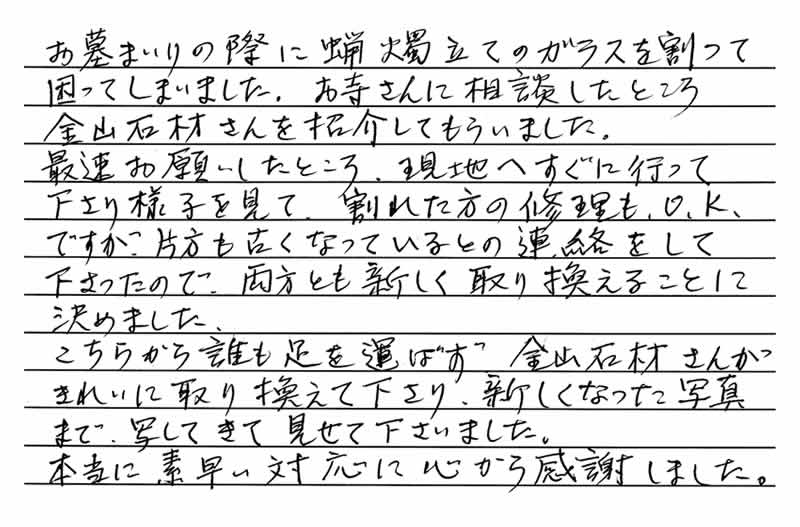 お墓まいりの際に蝋燭立てのガラスを割って
困ってしまいました。お寺さんに相談したところ
金山石材さんを紹介してもらいました。
最速お願いしたところ、現地へすぐに行って
下さり様子を見て、割れた方の修理も、O.K、
ですが、片方も古くなっているとの連絡をして
下さったので、両方とも新しく取り換えることに
決めました、
こちらから誰も足を運ばず、金山石材さんが
きれいに取り換えて下さり、新しくなった写真
まで、写してきて見せて下さいました。
本当に素早い対応に心から感謝しました。